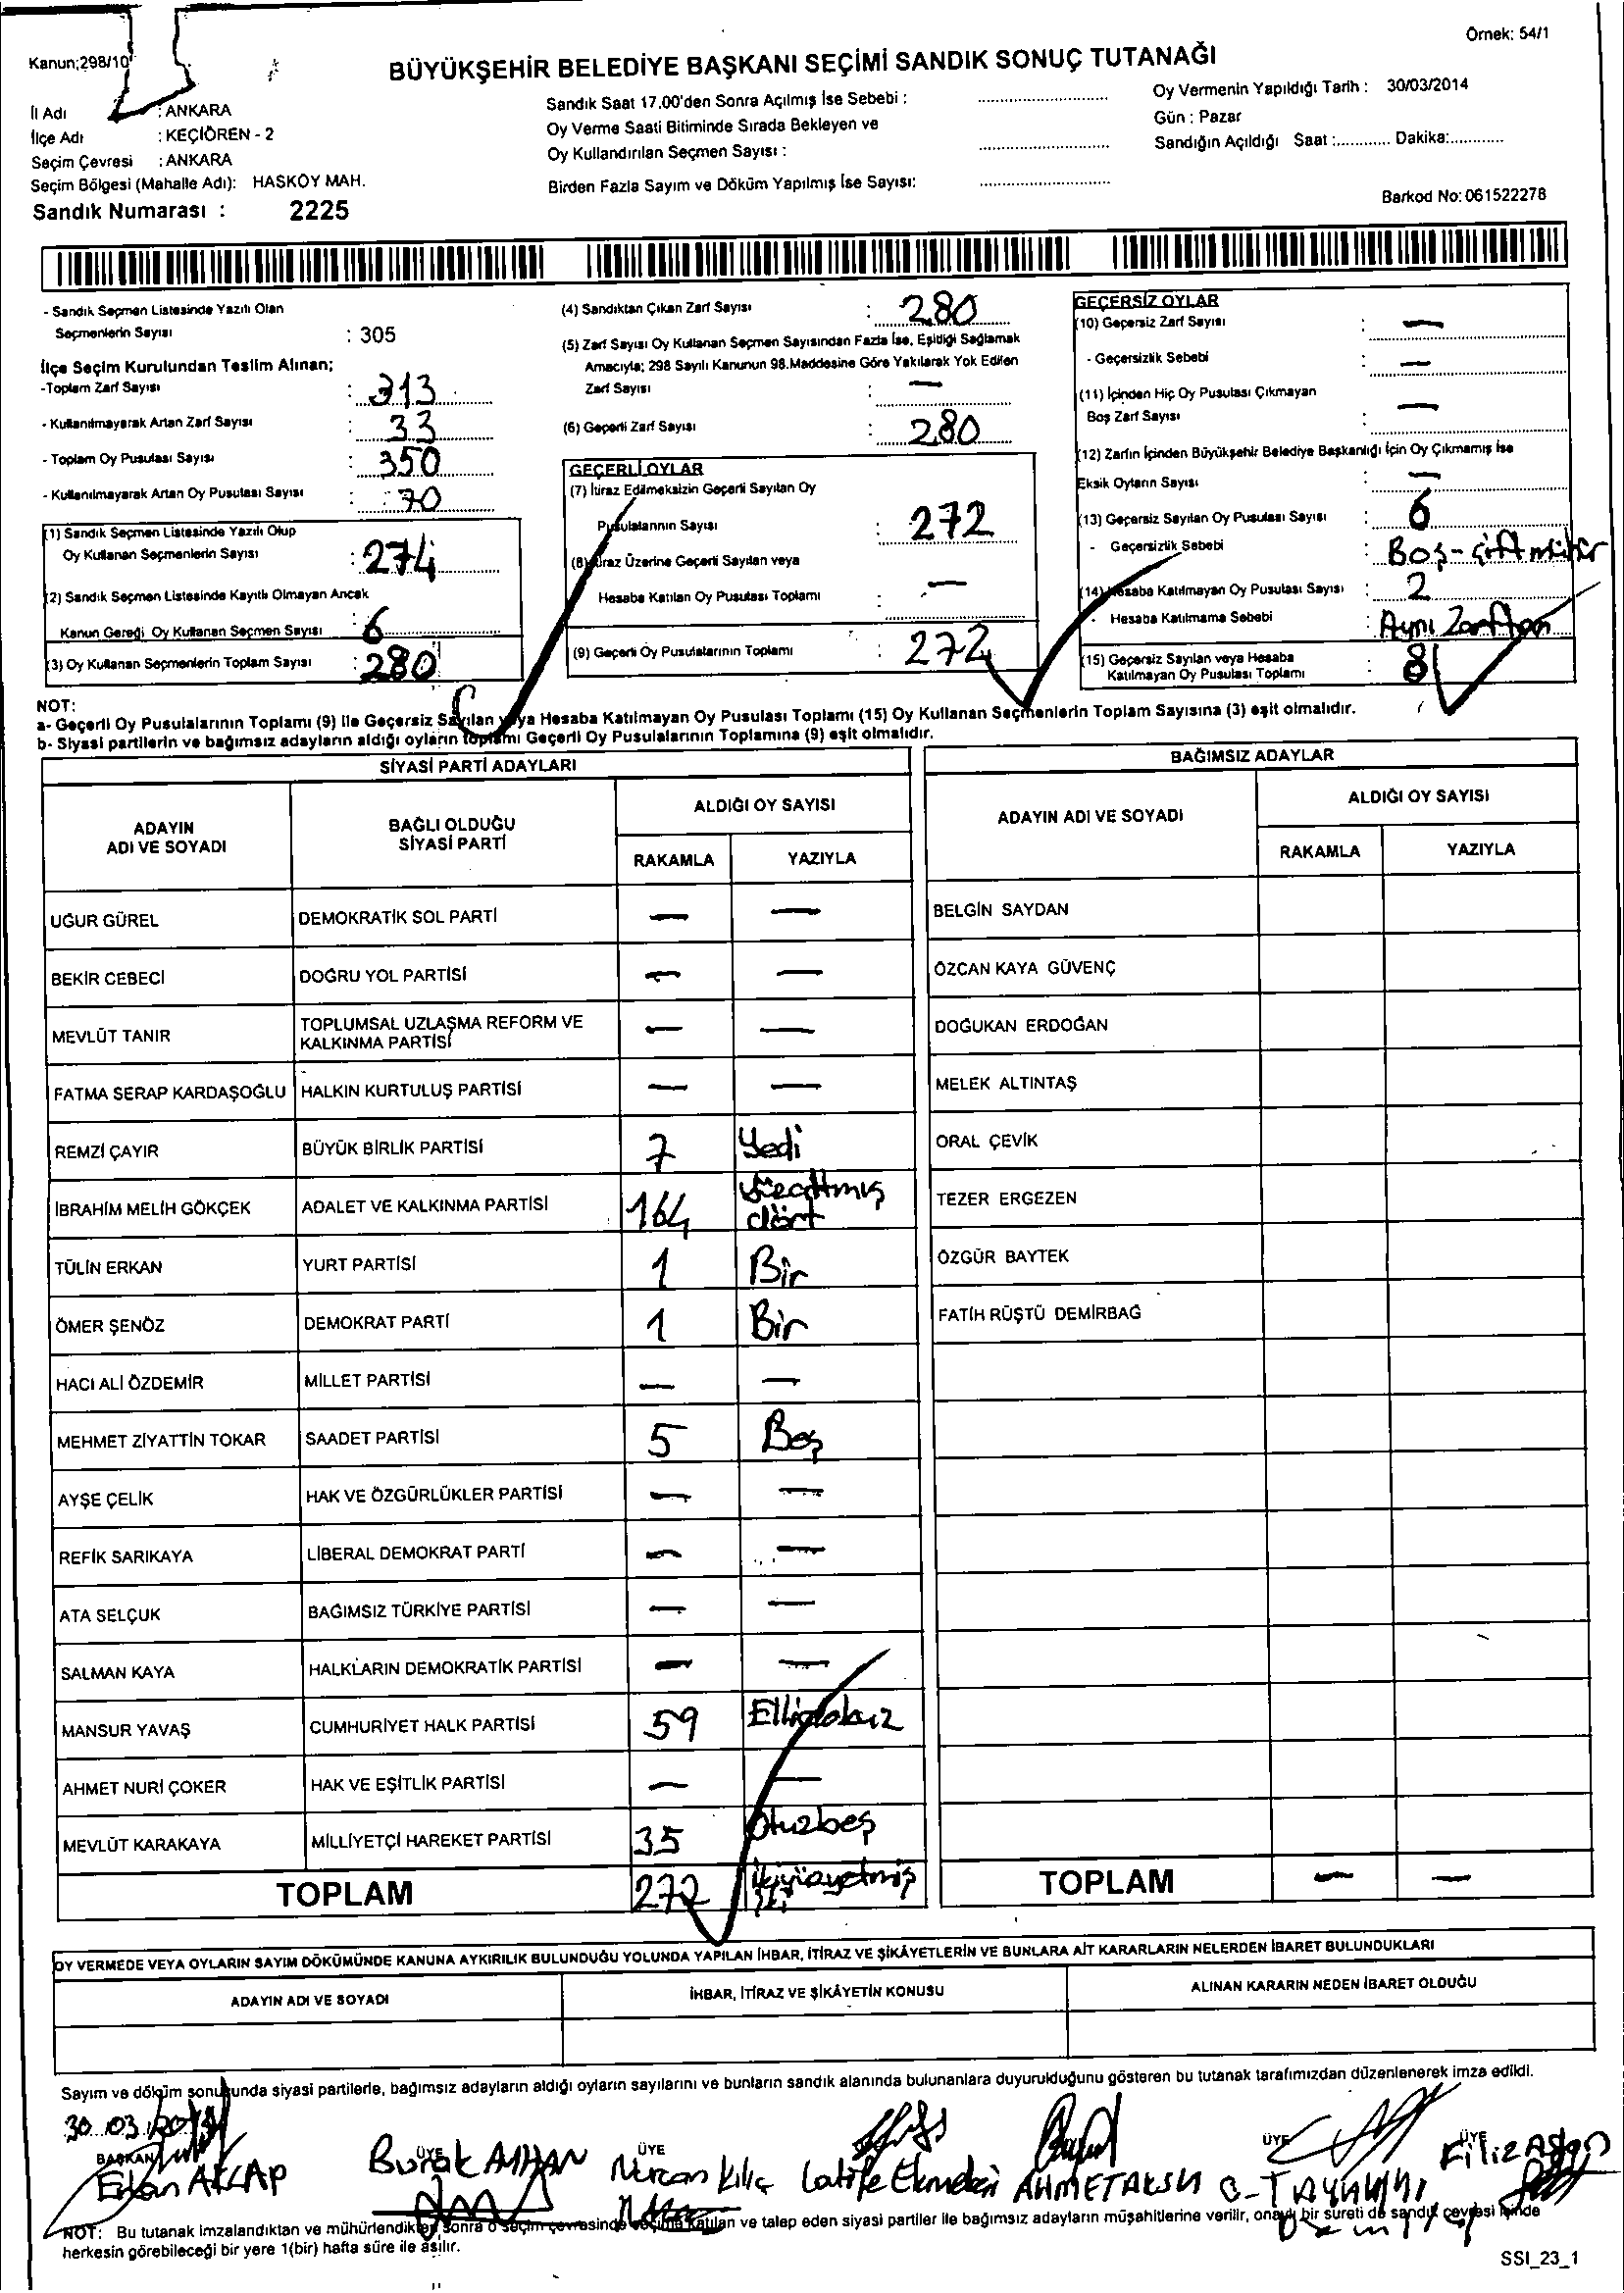 Örnek: 54/1
Kanun:298/10
BÜYÜKŞEHİR BELEDİYE BAŞKANI SEÇİMİ SANDIK SONUÇ TUTANAĞI
İl Adı : ANKARA
İlçe Adı : KEÇİÖREN - 2
Seçim Çevresi : ANKARA
Seçim Bölgesi (Mahalle Adı): HASKÖY MAH.
Sandık Numarası : 2225
Sandık Saat 17.00'den Sonra Açılmış İse Sebebi :
Oy Verme Saati Bitiminde Sırada Bekleyen ve
Oy Kullandırılan Seçmen Sayısı :
Birden Fazla Sayım ve Döküm Yapılmış İse Sayısı:
Oy Vermenin Yapıldığı Tarih : 30/03/2014
Gün : Pazar
Sandığın Açıldığı Saat :............ Dakika:............
Barkod No: 061522278
- Sandık Seçmen Listesinde Yazılı Olan
Seçmenlerin Sayısı : 305
İlçe Seçim Kurulundan Teslim Alınan;
-Toplam Zarf Sayısı : 313
- Kullanılmayarak Artan Zarf Sayısı : 33
- Toplam Oy Pusulası Sayısı : 350
- Kullanılmayarak Artan Oy Pusulası Sayısı : 70
(1) Sandık Seçmen Listesinde Yazılı Olup
Oy Kullanan Seçmenlerin Sayısı : 274
(2) Sandık Seçmen Listesinde Kayıtlı Olmayan Ancak
Kanun Gereği Oy Kullanan Seçmen Sayısı : 6
(3) Oy Kullanan Seçmenlerin Toplam Sayısı : 280
(4) Sandıktan Çıkan Zarf Sayısı : 280
(5) Zarf Sayısı Oy Kullanan Seçmen Sayısından Fazla İse, Eşitliği Sağlamak
Amacıyla; 298 Sayılı Kanunun 98.Maddesine Göre Yakılarak Yok Edilen
Zarf Sayısı : —
(6) Geçerli Zarf Sayısı : 280
GEÇERLİ OYLAR
(7) İtiraz Edilmeksizin Geçerli Sayılan Oy
Pusulalarının Sayısı : 272
(8) İtiraz Üzerine Geçerli Sayılan veya
Hesaba Katılan Oy Pusulası Toplamı : —
(9) Geçerli Oy Pusulalarının Toplamı : 272
GEÇERSİZ OYLAR
(10) Geçersiz Zarf Sayısı : —
- Geçersizlik Sebebi : —
(11) İçinden Hiç Oy Pusulası Çıkmayan
Boş Zarf Sayısı : —
(12) Zarfın İçinden Büyükşehir Belediye Başkanlığı İçin Oy Çıkmamış İse
Eksik Oyların Sayısı : —
(13) Geçersiz Sayılan Oy Pusulası Sayısı : 6
- Geçersizlik Sebebi : Boş - çift mühür
(14) Hesaba Katılmayan Oy Pusulası Sayısı : 2
- Hesaba Katılmama Sebebi : Aynı Zarftan
(15) Geçersiz Sayılan veya Hesaba
Katılmayan Oy Pusulası Toplamı : 8
NOT:
a- Geçerli Oy Pusulalarının Toplamı (9) ile Geçersiz Sayılan veya Hesaba Katılmayan Oy Pusulası Toplamı (15) Oy Kullanan Seçmenlerin Toplam Sayısına (3) eşit olmalıdır.
b- Siyasi partilerin ve bağımsız adayların aldığı oyların toplamı Geçerli Oy Pusulalarının Toplamına (9) eşit olmalıdır.
SİYASİ PARTİ ADAYLARI
ADAYIN ADI VE SOYADI BAĞLI OLDUĞU SİYASİ PARTİ ALDIĞI OY SAYISI
RAKAMLA YAZIYLA
UĞUR GÜREL DEMOKRATİK SOL PARTİ — —
BEKİR CEBECİ DOĞRU YOL PARTİSİ — —
MEVLÜT TANIR TOPLUMSAL UZLAŞMA REFORM VE KALKINMA PARTİSİ — —
FATMA SERAP KARDAŞOĞLU HALKIN KURTULUŞ PARTİSİ — —
REMZİ ÇAYIR BÜYÜK BİRLİK PARTİSİ 7 Yedi
İBRAHİM MELİH GÖKÇEK ADALET VE KALKINMA PARTİSİ 164 Yüzaltmış dört
TÜLİN ERKAN YURT PARTİSİ 1 Bir
ÖMER ŞENÖZ DEMOKRAT PARTİ 1 Bir
HACI ALİ ÖZDEMİR MİLLET PARTİSİ — —
MEHMET ZİYATTİN TOKAR SAADET PARTİSİ 5 Beş
AYŞE ÇELİK HAK VE ÖZGÜRLÜKLER PARTİSİ — —
REFİK SARIKAYA LİBERAL DEMOKRAT PARTİ — —
ATA SELÇUK BAĞIMSIZ TÜRKİYE PARTİSİ — —
SALMAN KAYA HALKLARIN DEMOKRATİK PARTİSİ — —
MANSUR YAVAŞ CUMHURİYET HALK PARTİSİ 59 Ellidokuz
AHMET NURİ ÇOKER HAK VE EŞİTLİK PARTİSİ — —
MEVLÜT KARAKAYA MİLLİYETÇİ HAREKET PARTİSİ 35 Otuzbeş
TOPLAM 272 İkiyüzyetmiş iki
BAĞIMSIZ ADAYLAR
ADAYIN ADI VE SOYADI ALDIĞI OY SAYISI
RAKAMLA YAZIYLA
BELGİN SAYDAN
ÖZCAN KAYA GÜVENÇ
DOĞUKAN ERDOĞAN
MELEK ALTINTAŞ
ORAL ÇEVİK
TEZER ERGEZEN
ÖZGÜR BAYTEK
FATİH RÜŞTÜ DEMİRBAĞ
TOPLAM — —
OY VERMEDE VEYA OYLARIN SAYIM DÖKÜMÜNDE KANUNA AYKIRILIK BULUNDUĞU YOLUNDA YAPILAN İHBAR, İTİRAZ VE ŞİKÂYETLERİN VE BUNLARA AİT KARARLARIN NELERDEN İBARET BULUNDUKLARI
ADAYIN ADI VE SOYADI İHBAR, İTİRAZ VE ŞİKÂYETİN KONUSU ALINAN KARARIN NEDEN İBARET OLDUĞU
Sayım ve döküm sonucunda siyasi partilerle, bağımsız adayların aldığı oyların sayılarını ve bunların sandık alanında bulunanlara duyurulduğunu gösteren bu tutanak tarafımızdan düzenlenerek imza edildi.
30.03.2014
BAŞKAN ÜYE ÜYE ÜYE ÜYE
Burak Nurcan Kılıç Latife Ekmekçi Filiz
NOT: Bu tutanak imzalandıktan ve mühürlendikten sonra o seçim çevresinde seçime katılan ve talep eden siyasi partiler ile bağımsız adayların müşahitlerine verilir, onaylı bir sureti de sandık çevresi içinde
herkesin görebileceği bir yere 1(bir) hafta süre ile asılır.
SSI_23_1